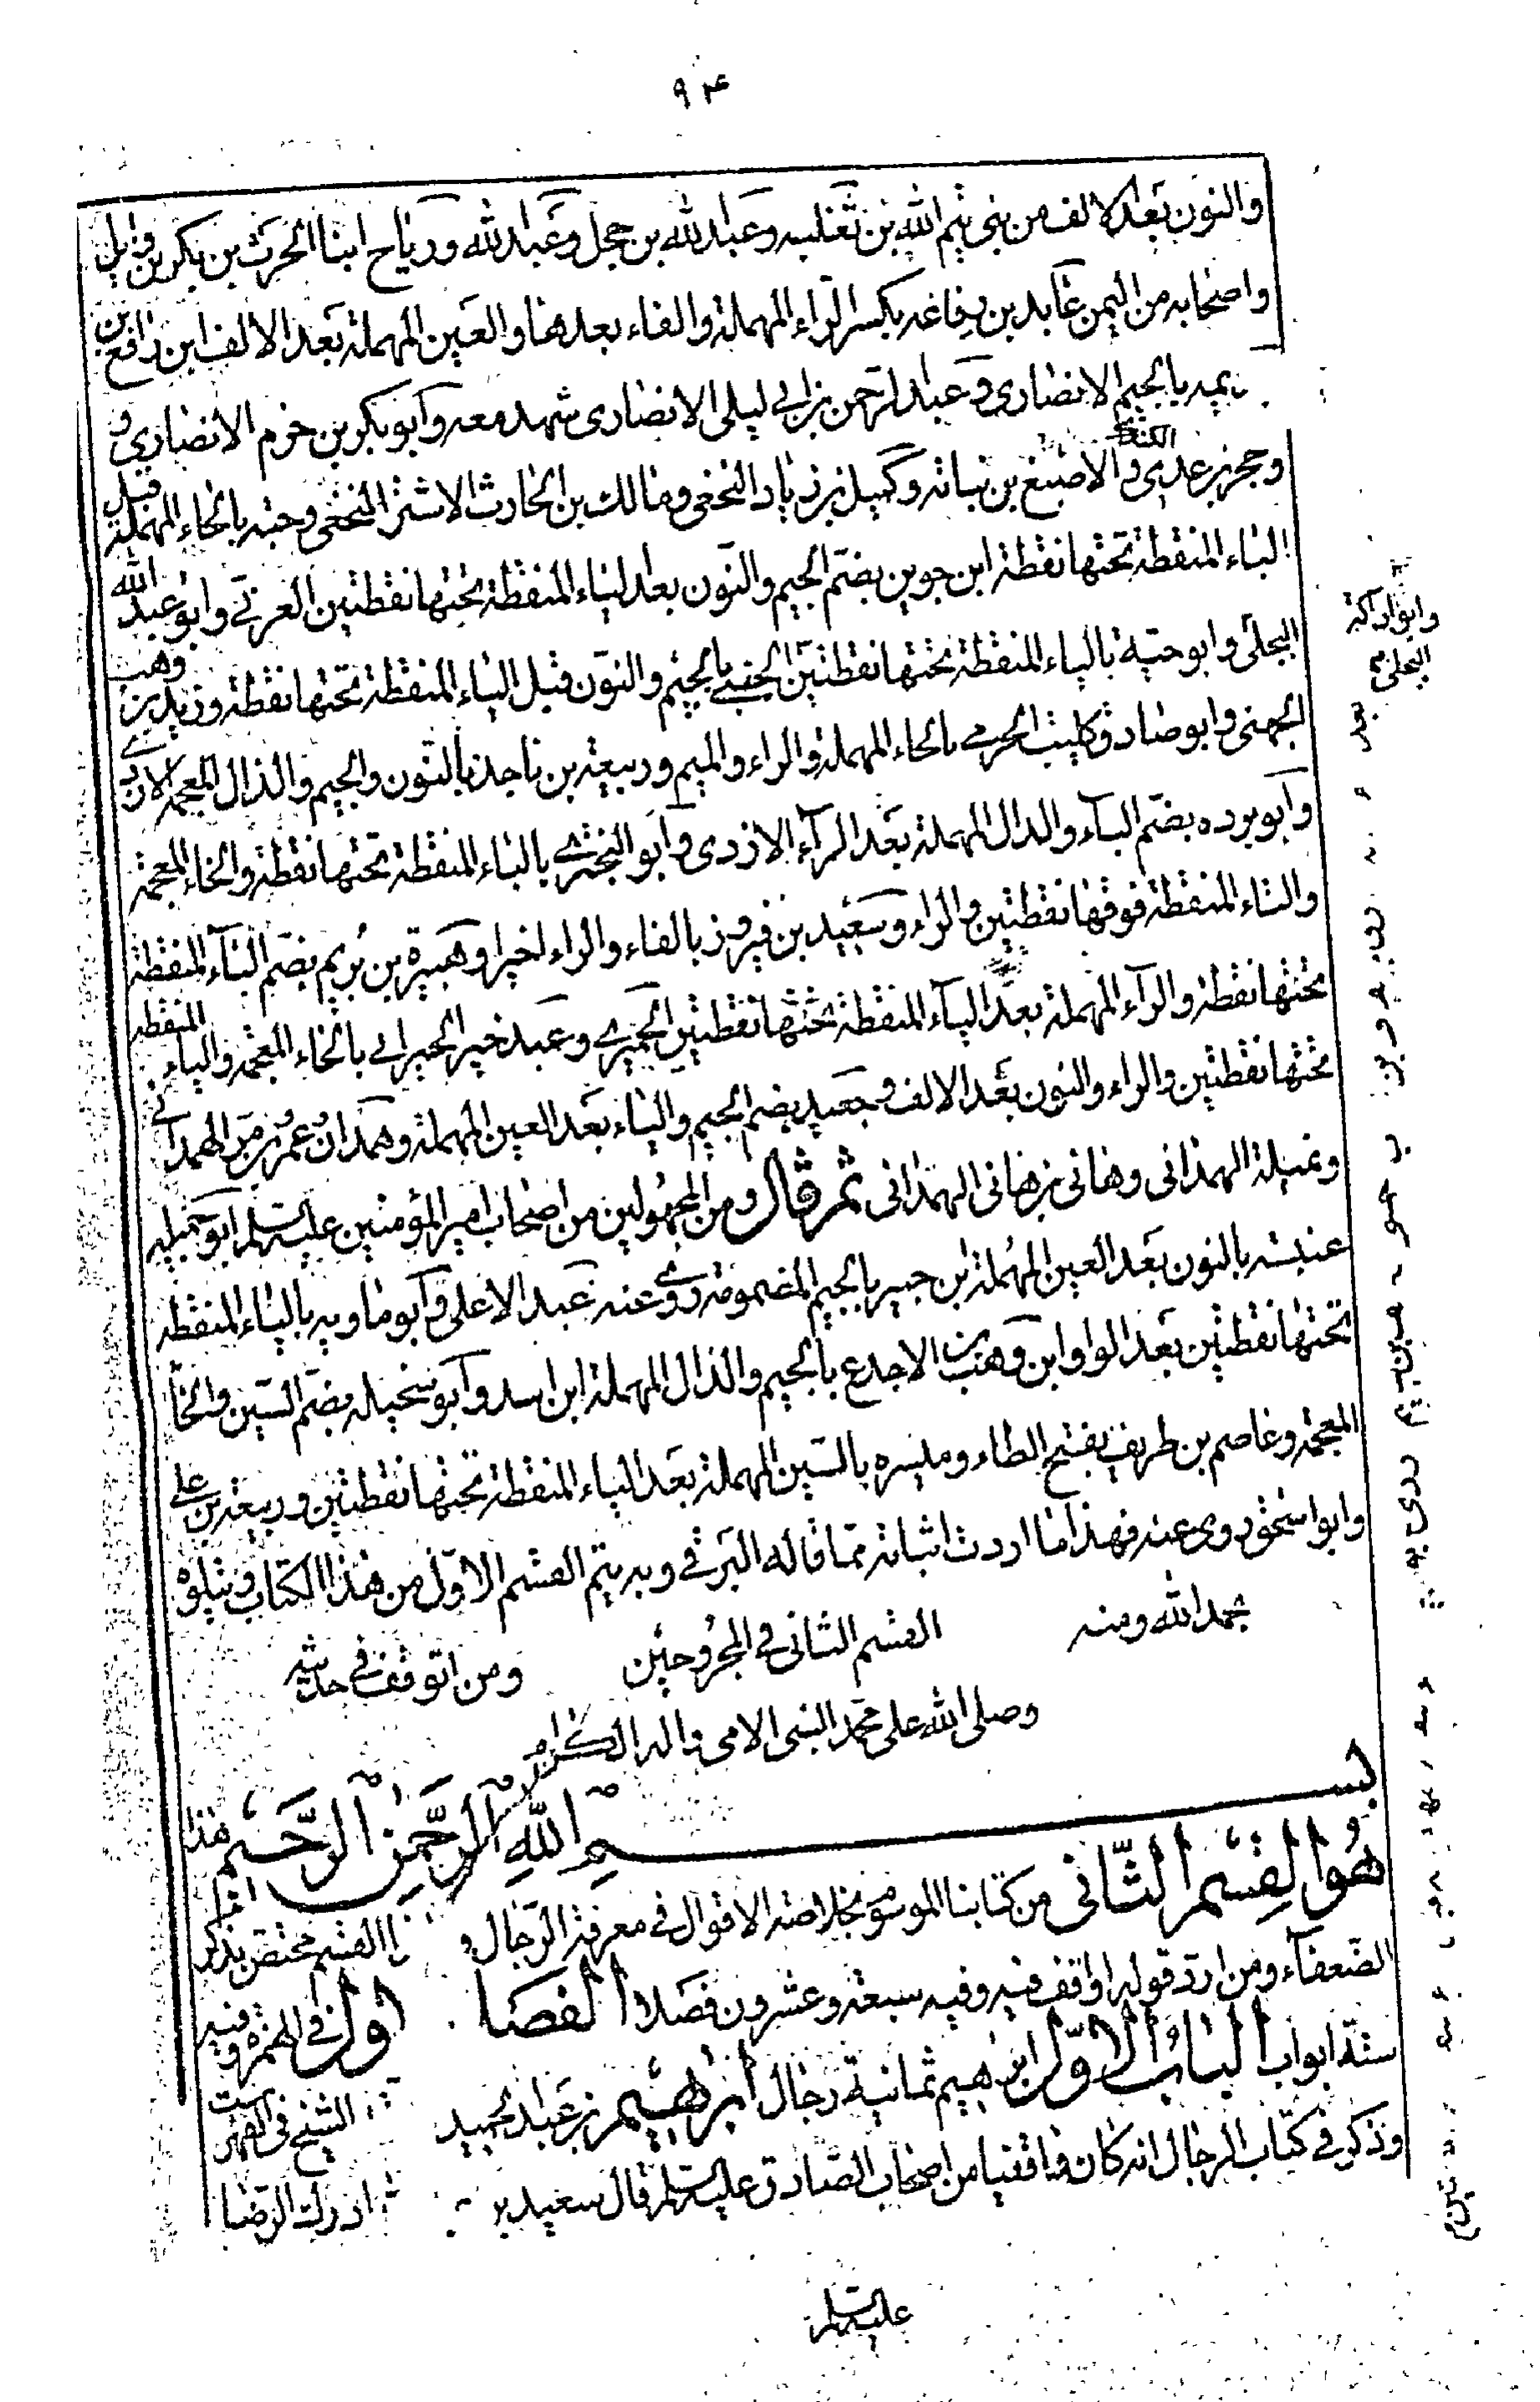 ٩٤
والنون بعد الالف من بنى تيم الله بن ثعلبه وعبد الله بن حجل وعبد الله ورياح ابنا الحرث بن بكر بن وايل
واصحابه من اليمن عابد بن رفاعه بكسر الراء المهملة والفاء بعدها والعين المهملة بعد الالف ابن رافع بن
بالجيم الانصارى وعبد الرحمن بن ابي ليلى الانصارى شهد معه وابو بكر بن حزم الانصارى و
وحجر بن عدى الكندى والاصبغ بن نباته وكميل بن زياد النخعى ومالك بن الحارث الاشتر النخعى وحبه بالحاء المهملة قبل
الباء المنقطة تحتها نقطة ابن جوين بضم الجيم والنون بعد الياء المنقطة تحتها نقطتين العرنى وابو عبد الله
البجلى وابو حية بالياء المنقطة تحتها نقطتين الجنبى بالجيم والنون قبل الباء المنقطة تحتها نقطة وزيد بن وهب
الجهنى وابو صادق كليب الحرمى بالحاء المهملة والراء والميم وربيعة بن ناجذ بالنون والجيم والذال المعجمة الازدى
وابو برده بضم الباء والدال المهملة بعد الراء الازدى وابو البخترى بالباء المنقطة تحتها نقطة والخاء المعجمة
والتاء المنقطة فوقها نقطتين والراء وسعيد بن فيروز بالفاء والراء اخيرا وهبيرة بن بريم بضم الباء المنقطة
تحتها نقطة والراء المهملة بعد الياء المنقطة تحتها نقطتين الحميرى وعبد خير الخيرانى بالخاء المعجمة والياء المنقطة
تحتها نقطتين والراء والنون بعد الالف وجعيد بضم الجيم والياء بعد العين المهملة وهمدان عمر بن مر الهمدانى
وتميلة الهمدانى وهانى بن هانى الهمدانى ثم قال ومن المجهولين من اصحاب امير المؤمنين عليه السلم ابو جميله
عنبسه بالنون بعد العين المهملة ابن جبير بالجيم المضمومة روى عنه عبد الاعلى وابو ماويه بالياء المنقطة
تحتها نقطتين بعد الواو ابن وهب بن الاجدع بالجيم والدال المهملة ابن اسد وابو سخيله بضم السين والخاء
المعجمة وعاصم بن طريف بفتح الطاء وميسره بالسين المهملة بعد الياء المنقطة تحتها نقطتين وربيعة بن على
وابو اسحق روى عنه فهذا ما اردت اثباته مما قاله البرقى وبه يتم القسم الاول من هذا الكتاب ويتلوه
بحمد الله ومنه القسم الثانى فى المجروحين ومن اتوقف فى حديثه
وصلى الله على محمد النبى الامى واله الكرام
بسم الله الرحمن الرحيم هذا
هو القسم الثانى من كتابنا الموسوم بخلاصة الاقوال فى معرفة الرجال و القسم مختص بذكر
الضعفاء ومن ارد قوله او اقف فيه وفيه سبعة وعشرون فصلا الفصل الاول فى الهمزة وفيه
ستة ابواب الباب الاول ابرهيم ثمانية رجال ابرهيم بن عبد الحميد الشيخ فى الفهرست
وذكر فى كتاب الرجال انه كان واقفيا من اصحاب الصادق عليه السلم قال سعيد بن ادرك الرضا
عليه السلم
وابو اراكة
البجلى